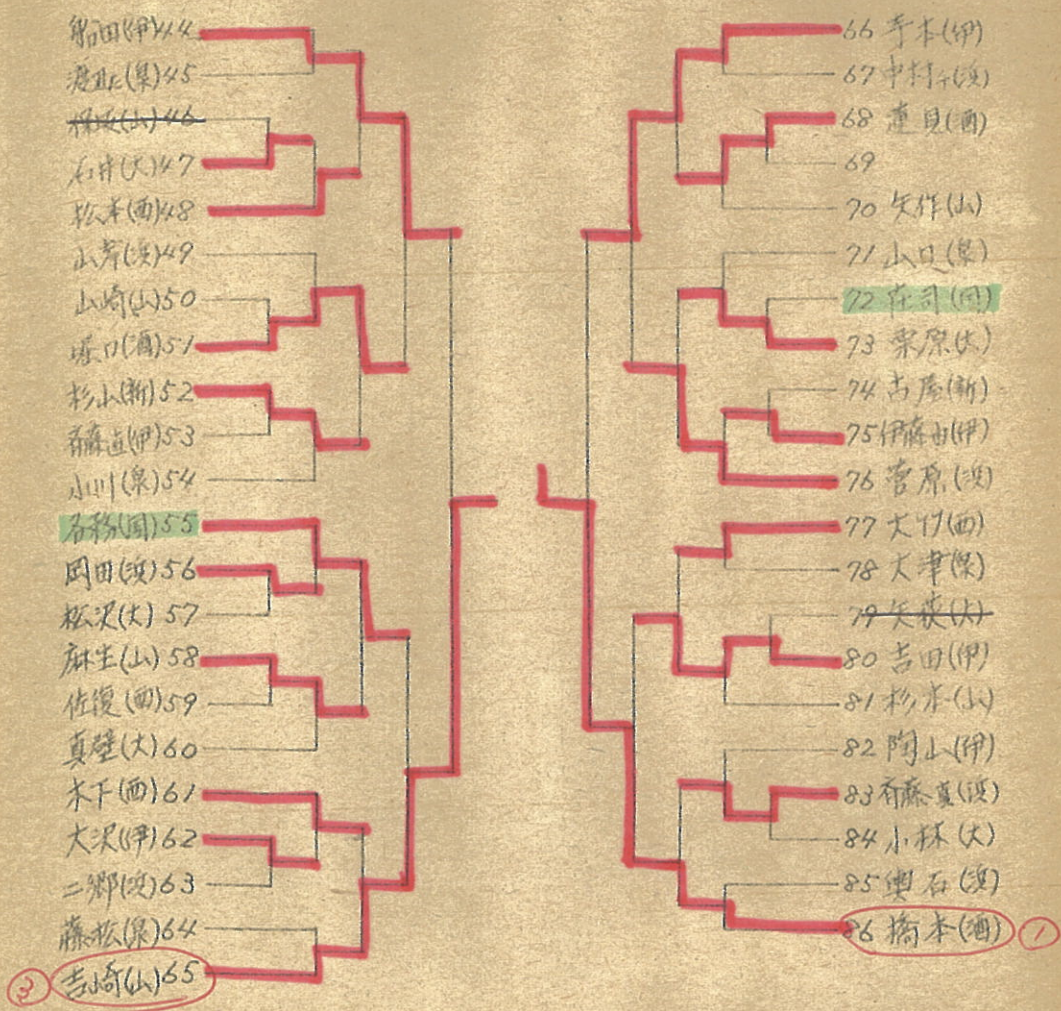 船田(伊)44
渡辺(泉)45
保坂(山)46
石井(大)47
松本(西)48
山岸(浜)49
山崎(山)50
堀口(酒)51
杉山(新)52
斉藤直(伊)53
小川(泉)54
名務(同)55
岡田(浜)56
松沢(大)57
麻生(山)58
佐復(西)59
真壁(大)60
木下(西)61
大沢(伊)62
二郷(浜)63
藤松(泉)64
② 吉崎(山)65
66 寺本(伊)
67 中村(浜)
68 蓮見(酒)
69
70 矢作(山)
71 山口(泉)
72 庄司(同)
73 栗原(大)
74 古屋(新)
75 伊藤由(伊)
76 菅原(浜)
77 大竹(西)
78 大津(泉)
79 矢萩(大)
80 吉田(伊)
81 杉本(山)
82 陶山(伊)
83 斉藤真(浜)
84 小林(大)
85 輿石(浜)
86 橋本(酒) ①